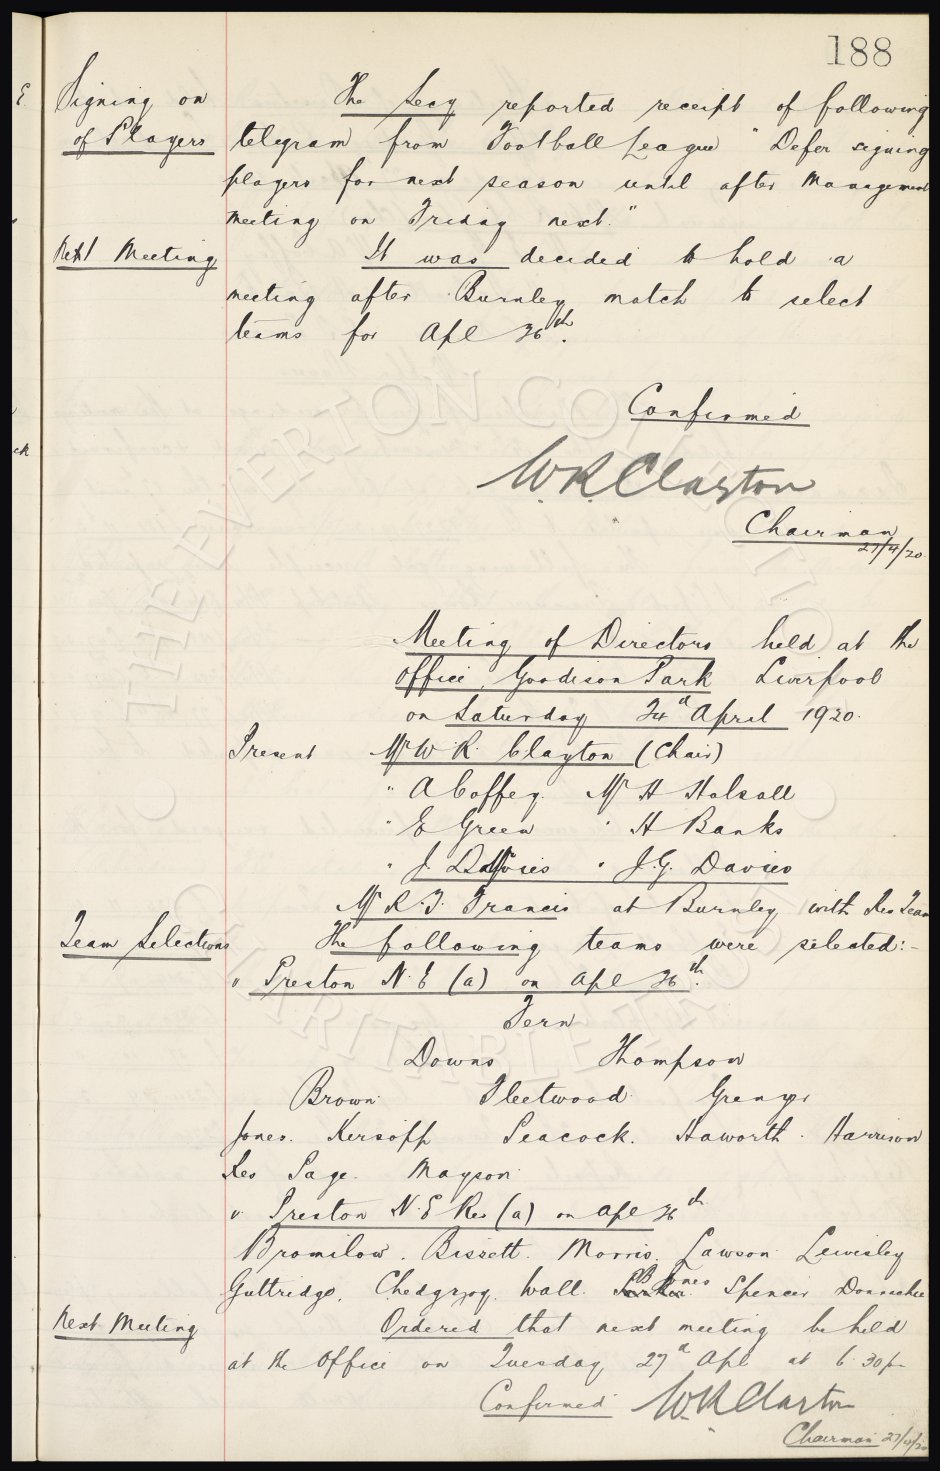 188
Signing on
of Players
The Secy reported receipt of following
telegram from Football League "Defer signing
players for next season until after Management
meeting on Friday next."
Next Meeting
It was decided to hold a
meeting after Burnley match to select
teams for Apl 26th.
Confirmed
W.R. Clayton
Chairman
27/4/20
Meeting of Directors held at the
Office, Goodison Park Liverpool
on Saturday 24th April 1920.
Present Mr W. R. Clayton (Chair)
" A Coffey. Mr H Halsall
" E Green " H Banks
" J. Davies " J.G. Davies
Mr R. T. Francis at Burnley with Res Team
Team Selections
The following teams were selected:-
v Preston N. E (a) on Apl 26th.
Fern
Downs Thompson
Brown Fleetwood Grenyer
Jones. Kirsopp Peacock. Haworth. Harrison
Res Page. Mayson
v. Preston N. E Res (a) on Apl 26th
Bromilow. Bissett. Morris. Lawson Lievesley
Guttridge. Chedgzoy. Wall. B Jones Spencer Donnachie
Next Meeting
Ordered that next meeting be held
at the Office on Tuesday 27th Apl at 6.30 p-
Confirmed W.R Clayton
Chairman 27/4/20
© THE EVERTON COLLECTION CHARITABLE TRUST